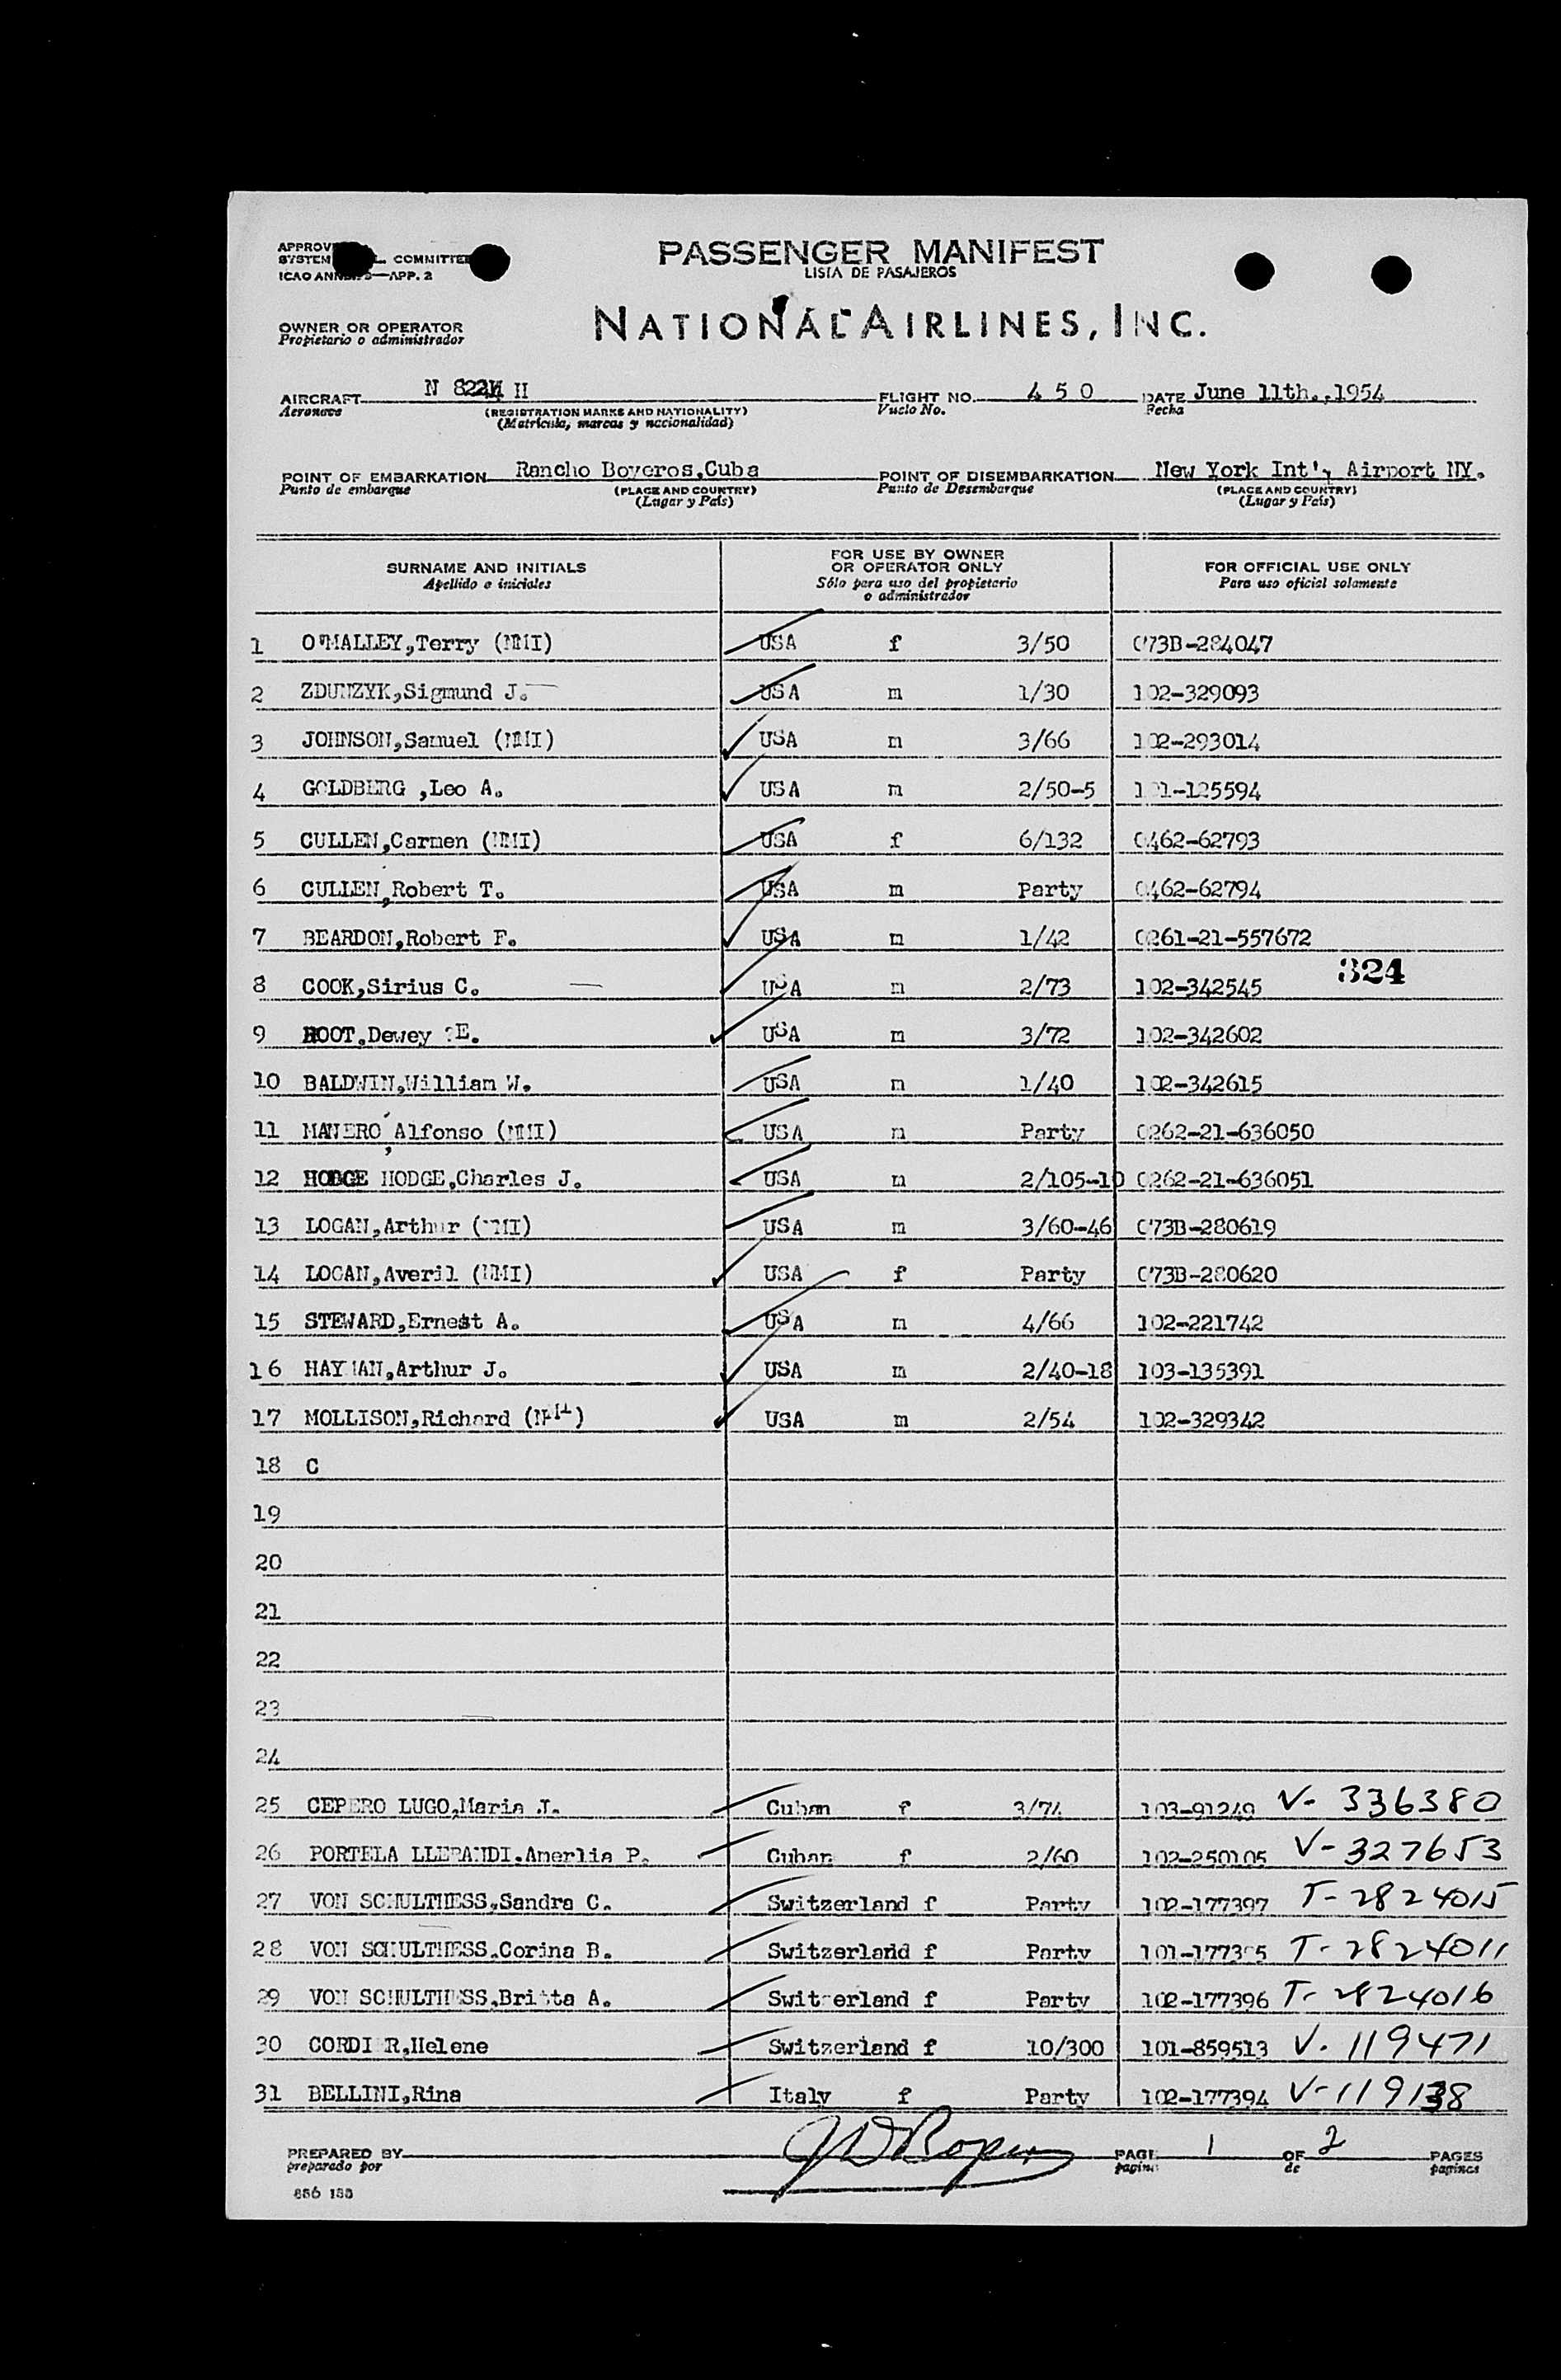 PASSENGER MANIFEST
LISTA DE PASAJEROS
SYSTEM COMMITTEE
ICAO —APP. 2
OWNER OR OPERATOR
Propietario o administrador
NATIONAL AIRLINES, INC.
AIRCRAFT N H FLIGHT NO. 4 5 0 DATE June 11th.,1954
Aeronave (REGISTRATION MARKS AND NATIONALITY) Vuelo No. Fecha
(Matrícula, marcas y nacionalidad)
POINT OF EMBARKATION Rancho Boyeros,Cuba POINT OF DISEMBARKATION New York Int'l Airport NY.
Punto de embarque (PLACE AND COUNTRY) Punto de Desembarque (PLACE AND COUNTRY)
(Lugar y País) (Lugar y País)
SURNAME AND INITIALS FOR USE BY OWNER OR OPERATOR ONLY FOR OFFICIAL USE ONLY
Apellido e iniciales Sólo para uso del propietario o administrador Para uso oficial solamente
1 O'MALLEY,Terry (NMI) USA f 3/50 073B-284047
2 ZDUNZYK,Sigmund J. USA m 1/30 102-329093
3 JOHNSON,Samuel (NMI) USA m 3/66 102-293014
4 GOLDBERG ,Leo A. USA m 2/50-5 101-125594
5 CULLEN,Carmen (NMI) USA f 6/132 0462-62793
6 CULLEN,Robert T. USA m Party 0462-62794
7 BEARDON,Robert F. USA m 1/42 0261-21-557672
324
8 COOK,Sirius C. USA m 2/73 102-342545
9 ROOT,Dewey E. USA m 3/72 102-342602
10 BALDWIN,William W. USA m 1/40 102-342615
11 MANERO,Alfonso (NMI) USA m Party 0262-21-636050
12 HODGE HODGE,Charles J. USA m 2/105-10 0262-21-636051
13 LOGAN,Arthur (NMI) USA m 3/60-46 073B-280619
14 LOGAN,Averil (NMI) USA f Party 073B-280620
15 STEWARD,Ernest A. USA m 4/66 102-221742
16 HAYMAN,Arthur J. USA m 2/40-18 103-135391
17 MOLLISON,Richard (NMI) USA m 2/54 102-329342
18 C
19
20
21
22
23
24
25 CEPERO LUGO,Maria J. Cuban f 3/74 103-91249 V- 336380
26 PORTELA LLERANDI,Amerlia P. Cuban f 2/60 102-250105 V-327653
27 VON SCHULTHESS,Sandra C. Switzerland f Party 102-177397 T-2824015
28 VON SCHULTHESS,Corina B. Switzerland f Party T-2824011
29 VON SCHULTHESS,Britta A. Switzerland f Party 102-177396 T-2824016
30 CORDIER,Helene Switzerland f 10/300 101-859513 V. 119471
31 BELLINI,Rina Italy f Party 102-177394 V-119138
PREPARED BY PAGE 1 OF 2 PAGES
preparado por pagina de paginas